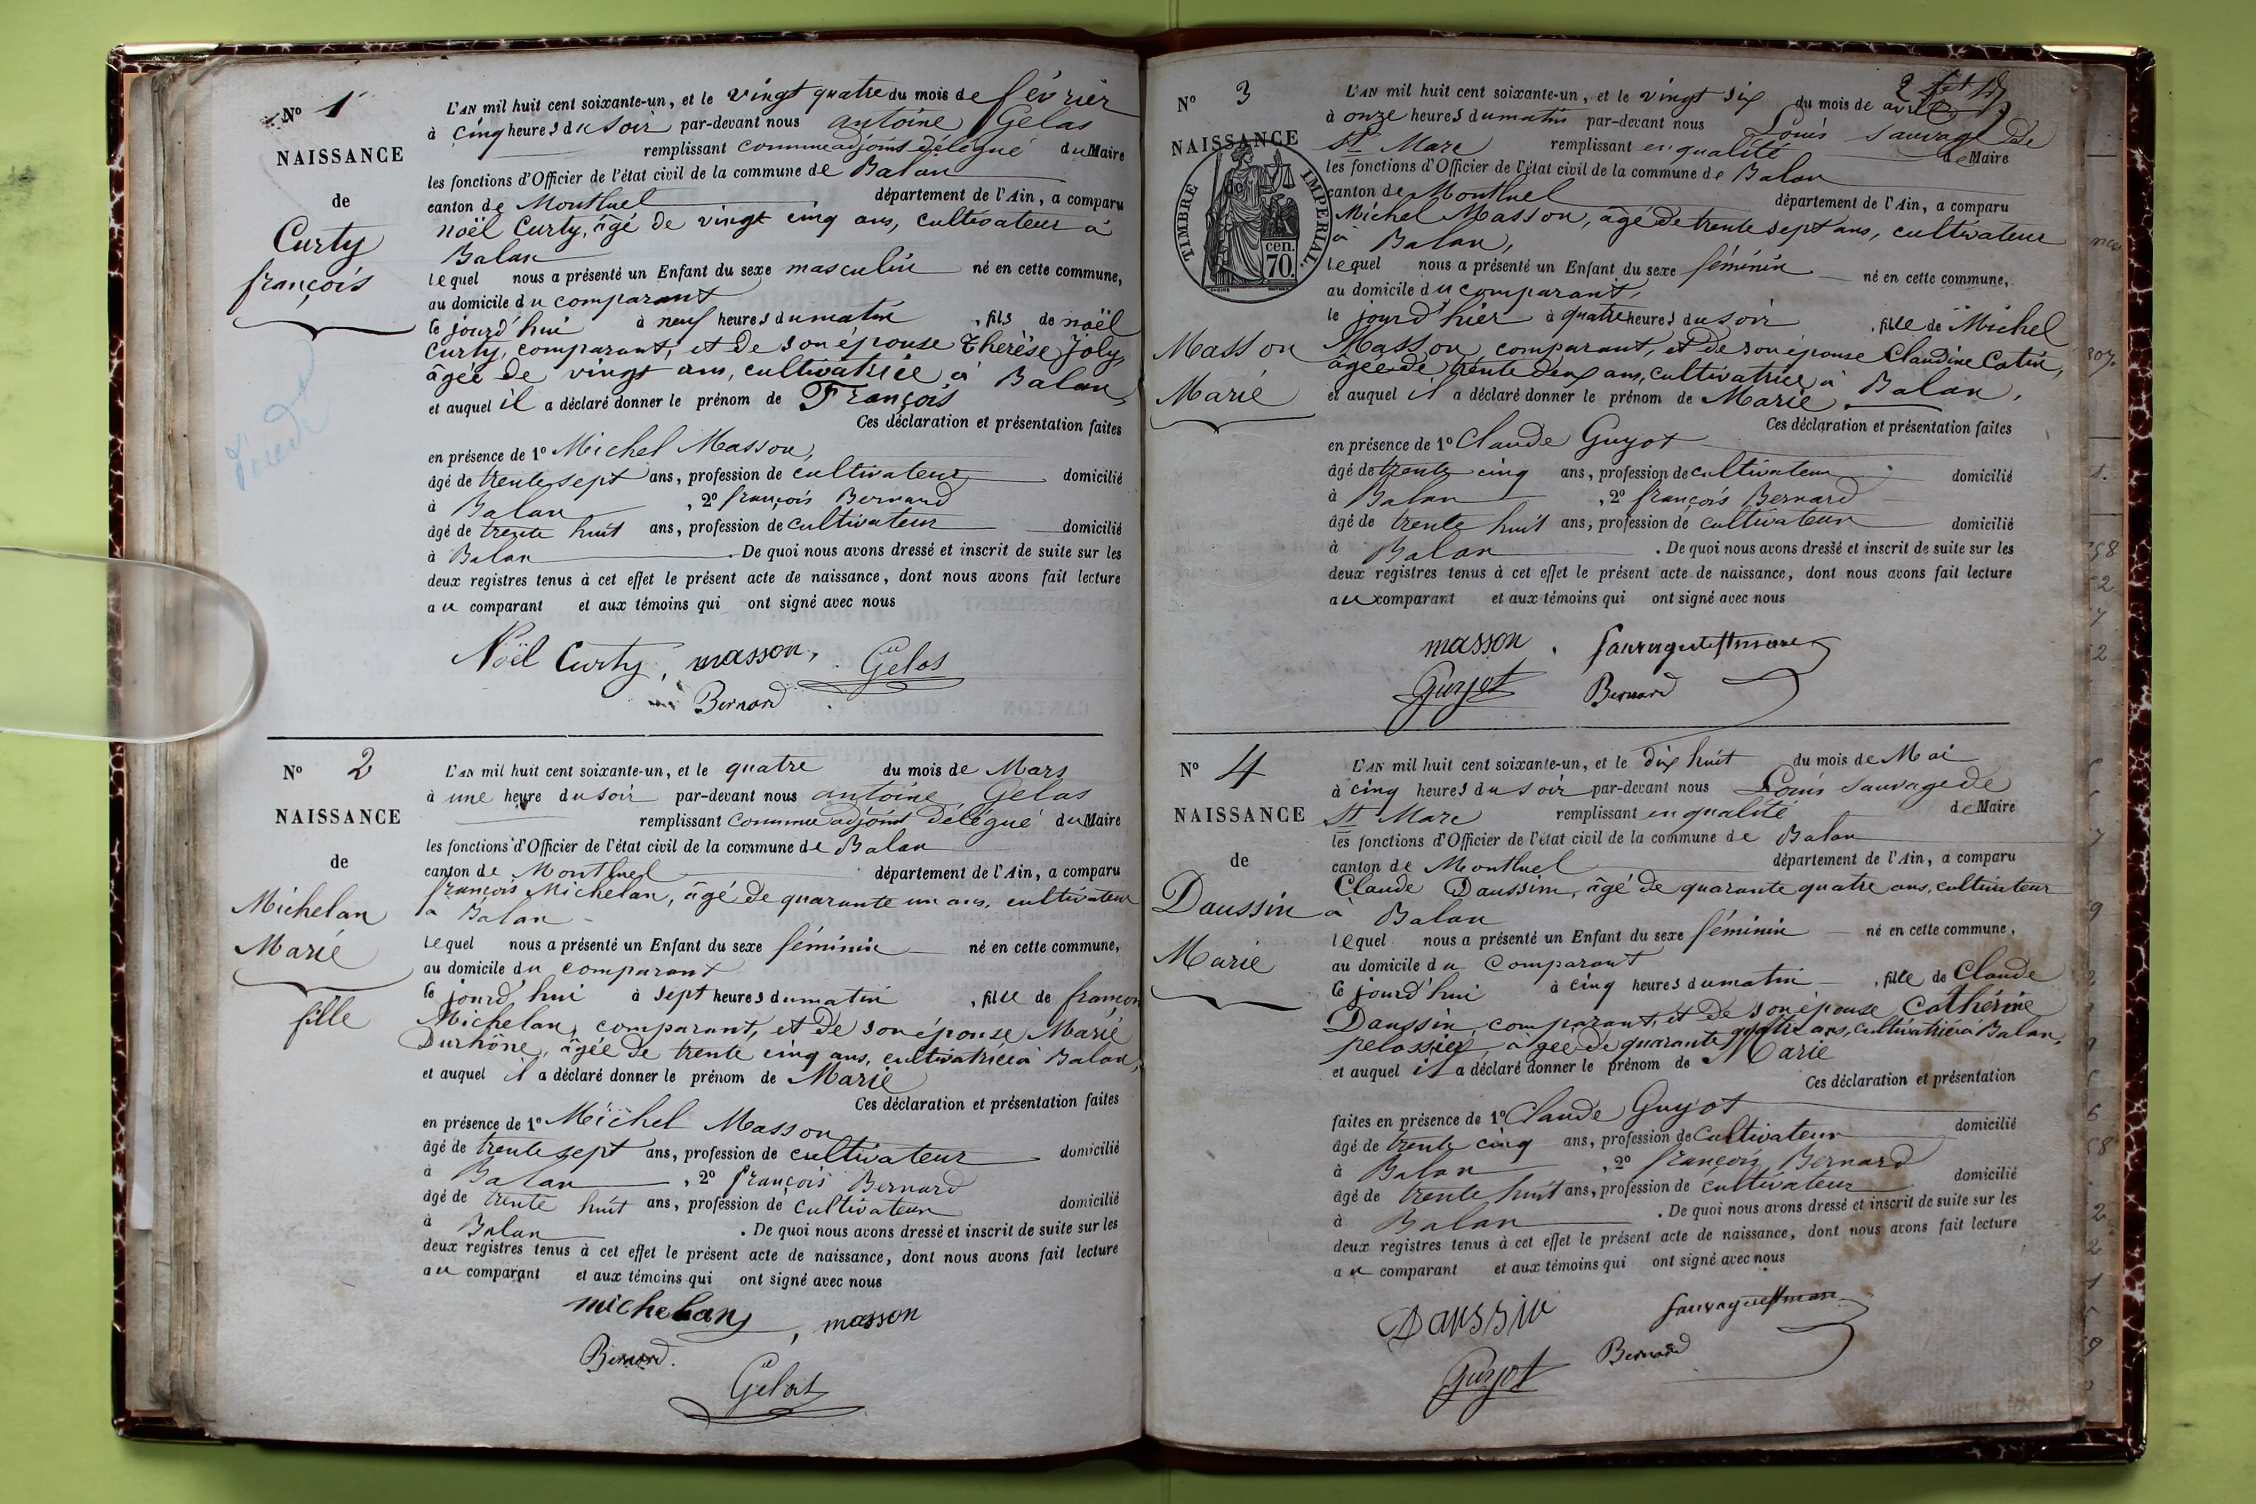 No 1
NAISSANCE
de
Curty
françois
L'AN mil huit cent soixante-un, et le vingt quatre du mois de février
à cinq heures du soir par-devant nous antoine Gelas
remplissant comme adjoint délégué du Maire
les fonctions d'Officier de l'état civil de la commune de Balan
canton de Montluel département de l'Ain, a comparu
noël Curty, âgé de vingt cinq ans, cultivateur à
Balan
lequel nous a présenté un Enfant du sexe masculin né en cette commune,
au domicile du comparant
ce jourd'hui à neuf heures du matin, fils de noël
Curty, comparant, et de son épouse Thérèse Joly,
âgée de vingt ans, cultivatrice à Balan,
et auquel il a déclaré donner le prénom de François
Ces déclaration et présentation faites
en présence de 1º Michel Masson,
âgé de trente sept ans, profession de cultivateur domicilié
à Balan, 2º françois Bernard
âgé de trente huit ans, profession de cultivateur domicilié
à Balan. De quoi nous avons dressé et inscrit de suite sur les
deux registres tenus à cet effet le présent acte de naissance, dont nous avons fait lecture
au comparant et aux témoins qui ont signé avec nous
Noël Curty, masson, Gelas
Bernard
No 2
NAISSANCE
de
Michelan
Marie
fille
L'AN mil huit cent soixante-un, et le quatre du mois de Mars
à une heure du soir par-devant nous antoine Gelas
remplissant comme adjoint délégué du Maire
les fonctions d'Officier de l'état civil de la commune de Balan
canton de Montluel département de l'Ain, a comparu
françois Michelan, âgé de quarante un ans, cultivateur
à Balan
lequel nous a présenté un Enfant du sexe féminin né en cette commune,
au domicile du comparant
ce jourd'hui à sept heures du matin, fille de françois
Michelan, comparant, et de son épouse Marie
Durhône, âgée de trente cinq ans, cultivatrice à Balan,
et auquel il a déclaré donner le prénom de Marie
Ces déclaration et présentation faites
en présence de 1º Michel Masson
âgé de trente sept ans, profession de cultivateur domicilié
à Balan, 2º françois Bernard
âgé de trente huit ans, profession de cultivateur domicilié
à Balan. De quoi nous avons dressé et inscrit de suite sur les
deux registres tenus à cet effet le présent acte de naissance, dont nous avons fait lecture
au comparant et aux témoins qui ont signé avec nous
michelan, masson
Bernard.
Gelas
No 3
NAISSANCE
de
TIMBRE IMPERIAL.
cen.
70.
Masson
Marie
L'AN mil huit cent soixante-un, et le vingt six du mois de avril
à onze heures du matin par-devant nous Louis Sauvage de
St Marc remplissant en qualité de Maire
les fonctions d'Officier de l'état civil de la commune de Balan
canton de Montluel département de l'Ain, a comparu
Michel Masson, âgé de trente sept ans, cultivateur
à Balan,
lequel nous a présenté un Enfant du sexe féminin né en cette commune,
au domicile du comparant,
le jourd'hier à quatre heures du soir, fille de Michel
Masson, comparant, et de son épouse Claudine Catin,
âgée de trente deux ans, cultivatrice à Balan,
et auquel il a déclaré donner le prénom de Marie
Ces déclaration et présentation faites
en présence de 1º Claude Guyot
âgé de trente cinq ans, profession de cultivateur domicilié
à Balan, 2º françois Bernard
âgé de trente huit ans, profession de cultivateur domicilié
à Balan. De quoi nous avons dressé et inscrit de suite sur les
deux registres tenus à cet effet le présent acte de naissance, dont nous avons fait lecture
au comparant et aux témoins qui ont signé avec nous
masson.
Guyot Bernard
No 4
NAISSANCE
de
Daussin
Marie
L'AN mil huit cent soixante-un, et le dix huit du mois de Mai
à cinq heures du soir par-devant nous Louis Sauvage de
St Marc remplissant en qualité de Maire
les fonctions d'Officier de l'état civil de la commune de Balan
canton de Montluel département de l'Ain, a comparu
Claude Daussin, âgé de quarante quatre ans, cultivateur
à Balan
lequel nous a présenté un Enfant du sexe féminin né en cette commune,
au domicile du comparant
ce jourd'hui à cinq heures du matin, fille de Claude
Daussin, comparant, et de son épouse Catherine
pelossier, âgée de quarante quatre ans, cultivatrice à Balan,
et auquel il a déclaré donner le prénom de Marie
Ces déclaration et présentation
faites en présence de 1º Claude Guyot domicilié
âgé de trente cinq ans, profession de cultivateur
à Balan, 2º françois Bernard
âgé de trente huit ans, profession de cultivateur domicilié
à Balan. De quoi nous avons dressé et inscrit de suite sur les
deux registres tenus à cet effet le présent acte de naissance, dont nous avons fait lecture
au comparant et aux témoins qui ont signé avec nous
Daussin
Guyot Bernard